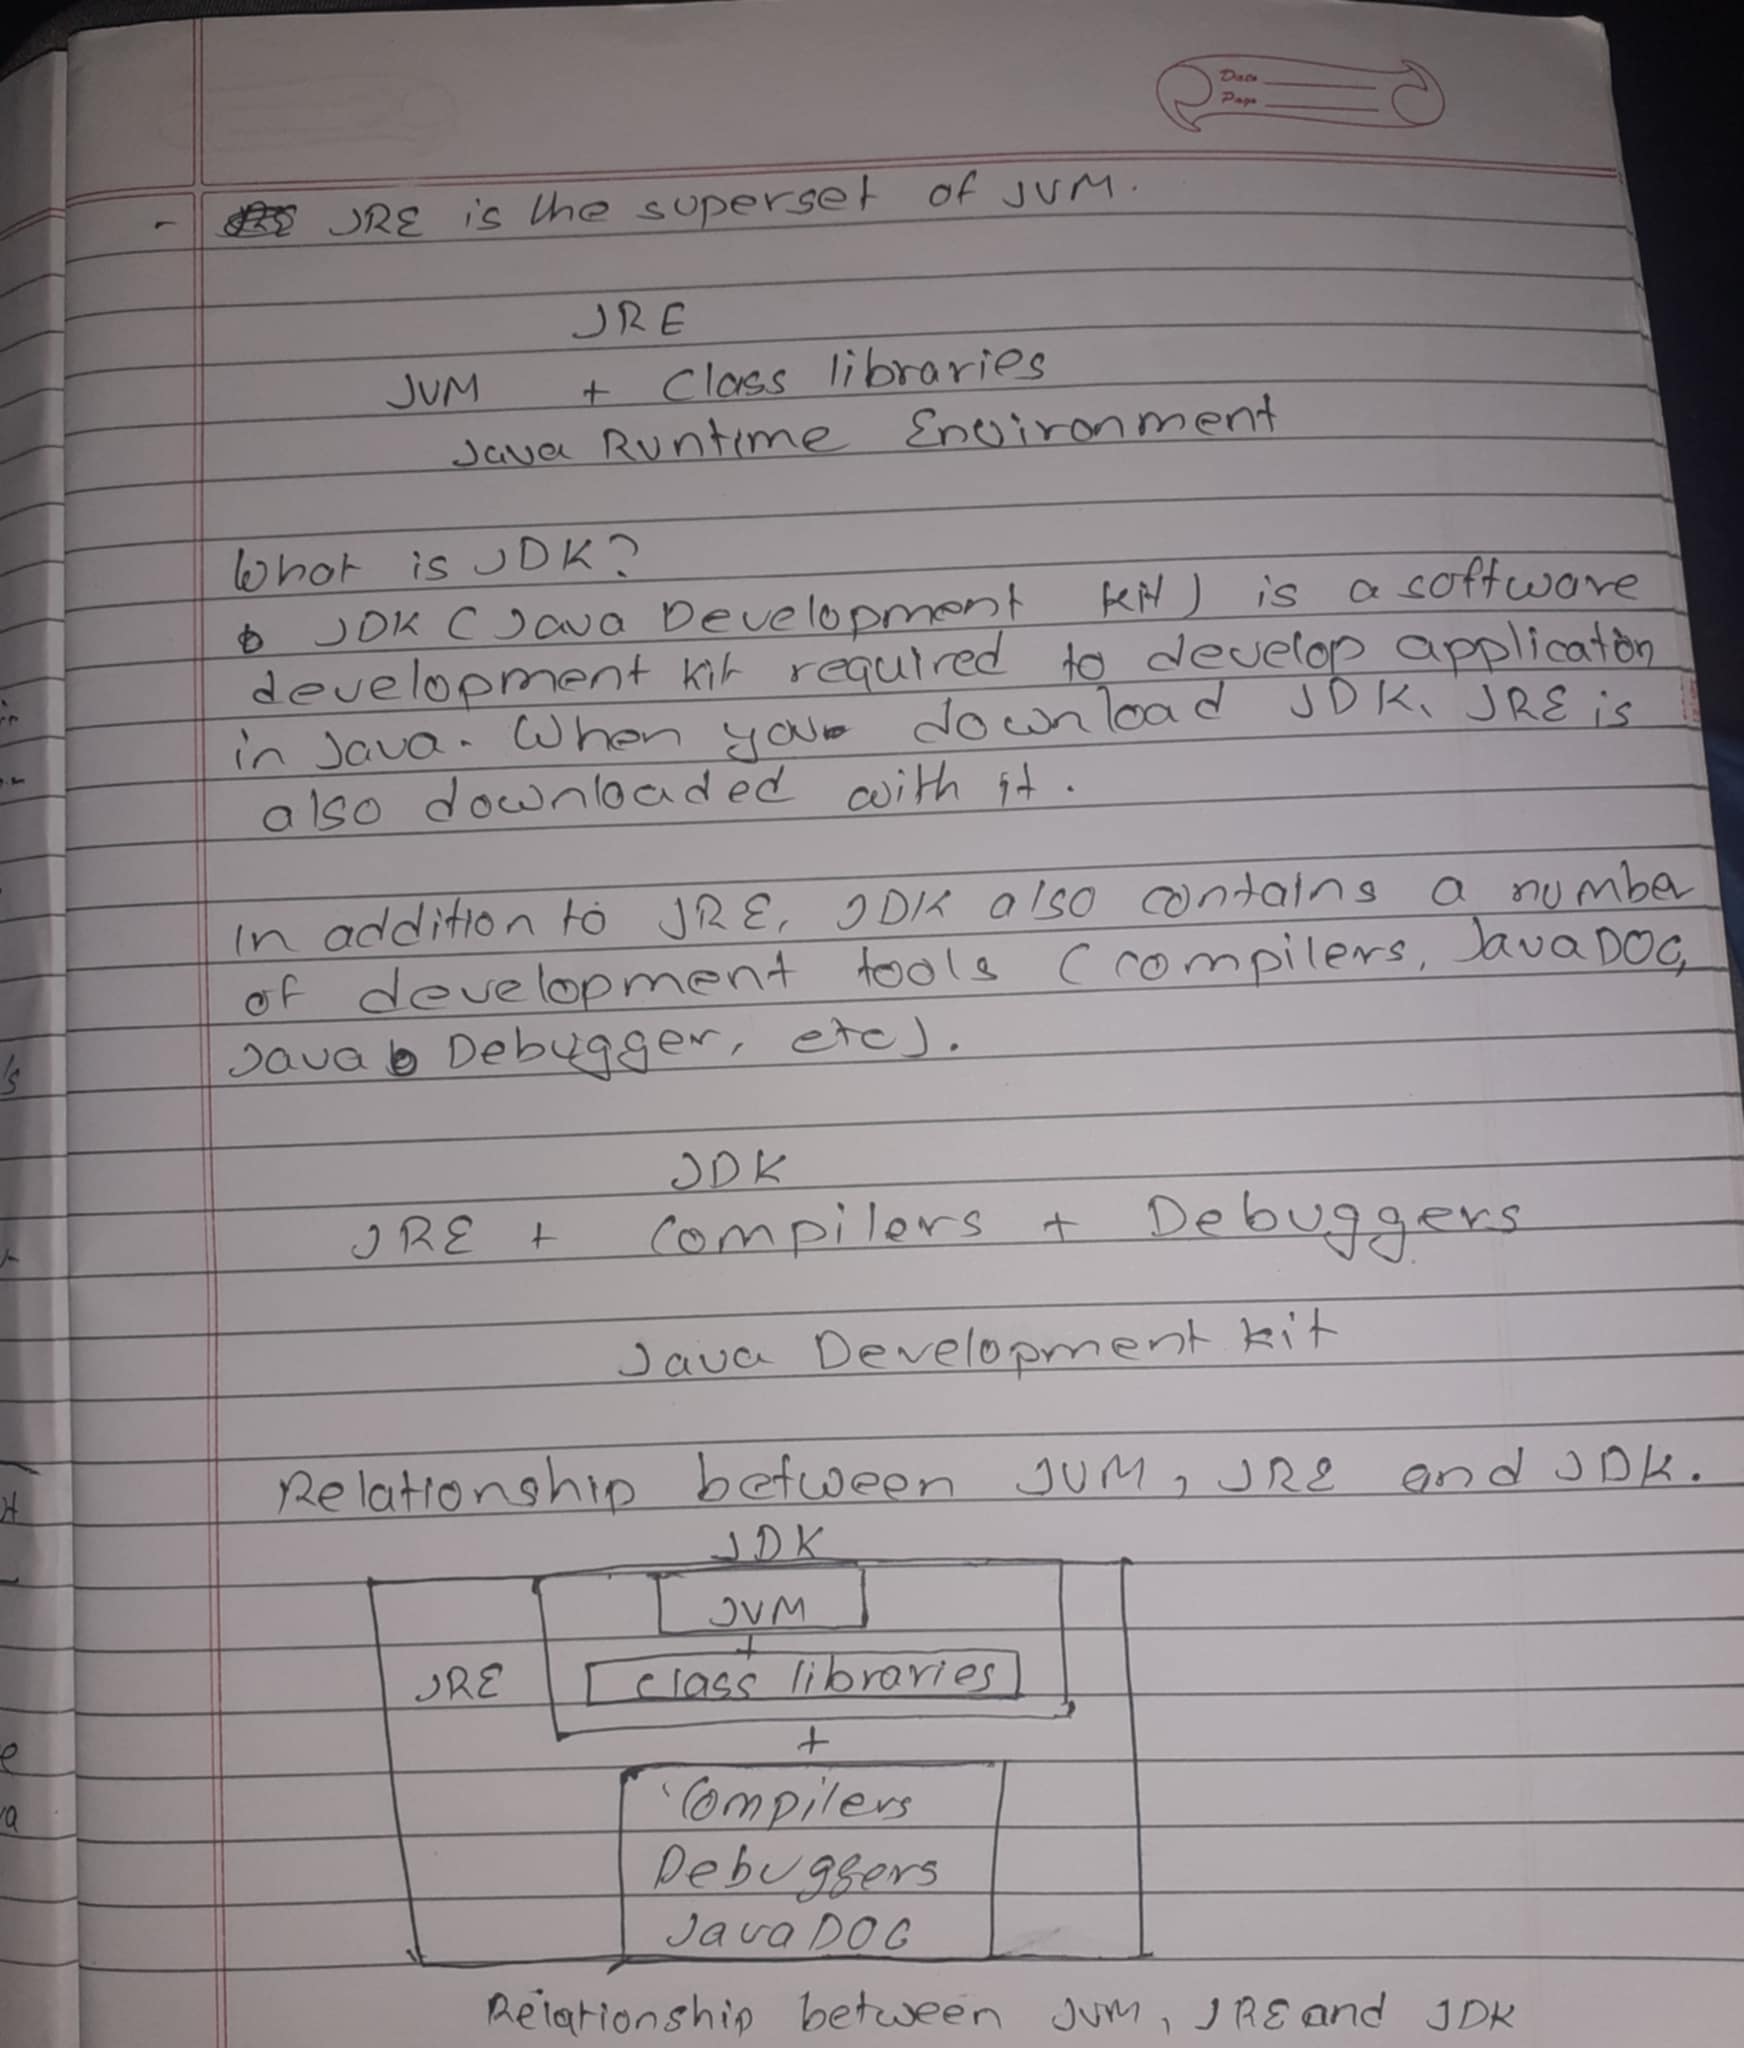 Date
Page
- JRE is the superset of JVM.
JRE
JVM + Class libraries
Java Runtime Environment
What is JDK?
JDK (Java Development kit) is a software
development kit required to develop application
in Java. When you download JDK, JRE is
also downloaded with it.
In addition to JRE, JDK also contains a number
of development tools (compilers, JavaDOC,
Java Debugger, etc).
JDK
JRE + Compilers + Debuggers
Java Development kit
Relationship between JVM, JRE and JDK.
JDK
JVM
+
JRE class libraries
+
Compilers
Debuggers
JavaDOC
Relationship between JVM, JRE and JDK